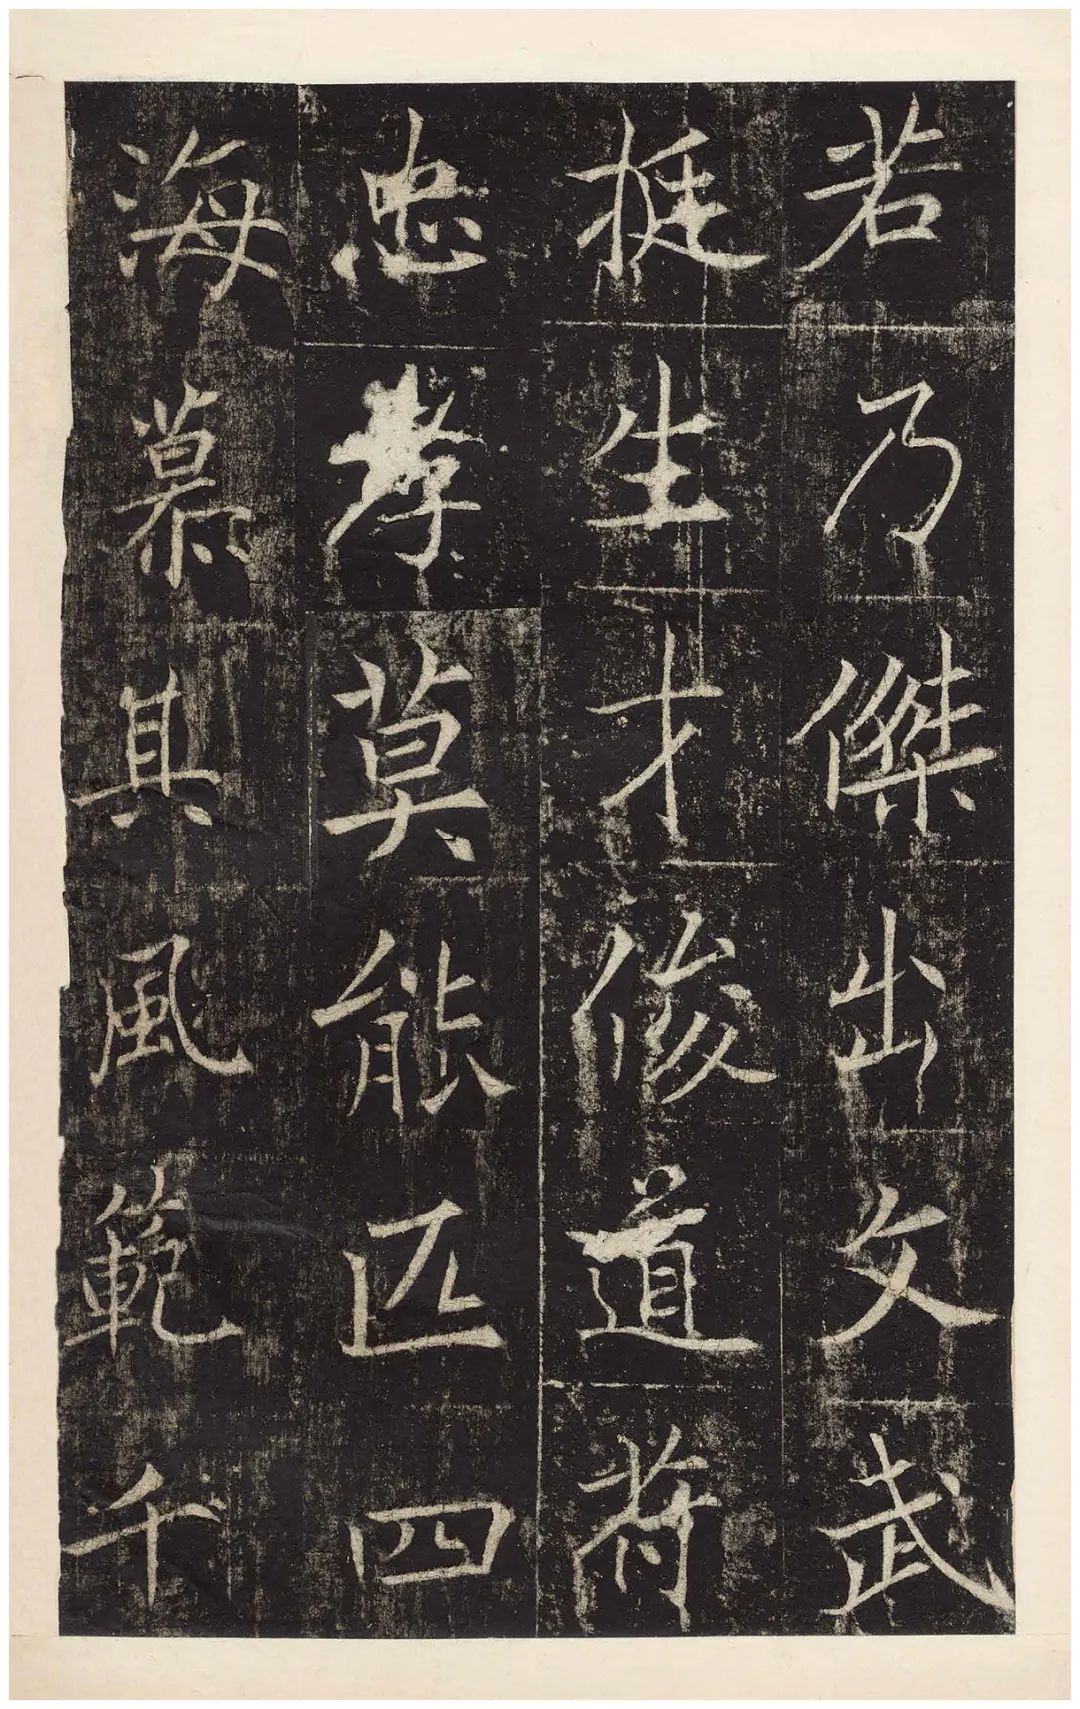 若乃傑出文武
挺生才俊道苻
忠孝莫能匹四
海慕其風範千